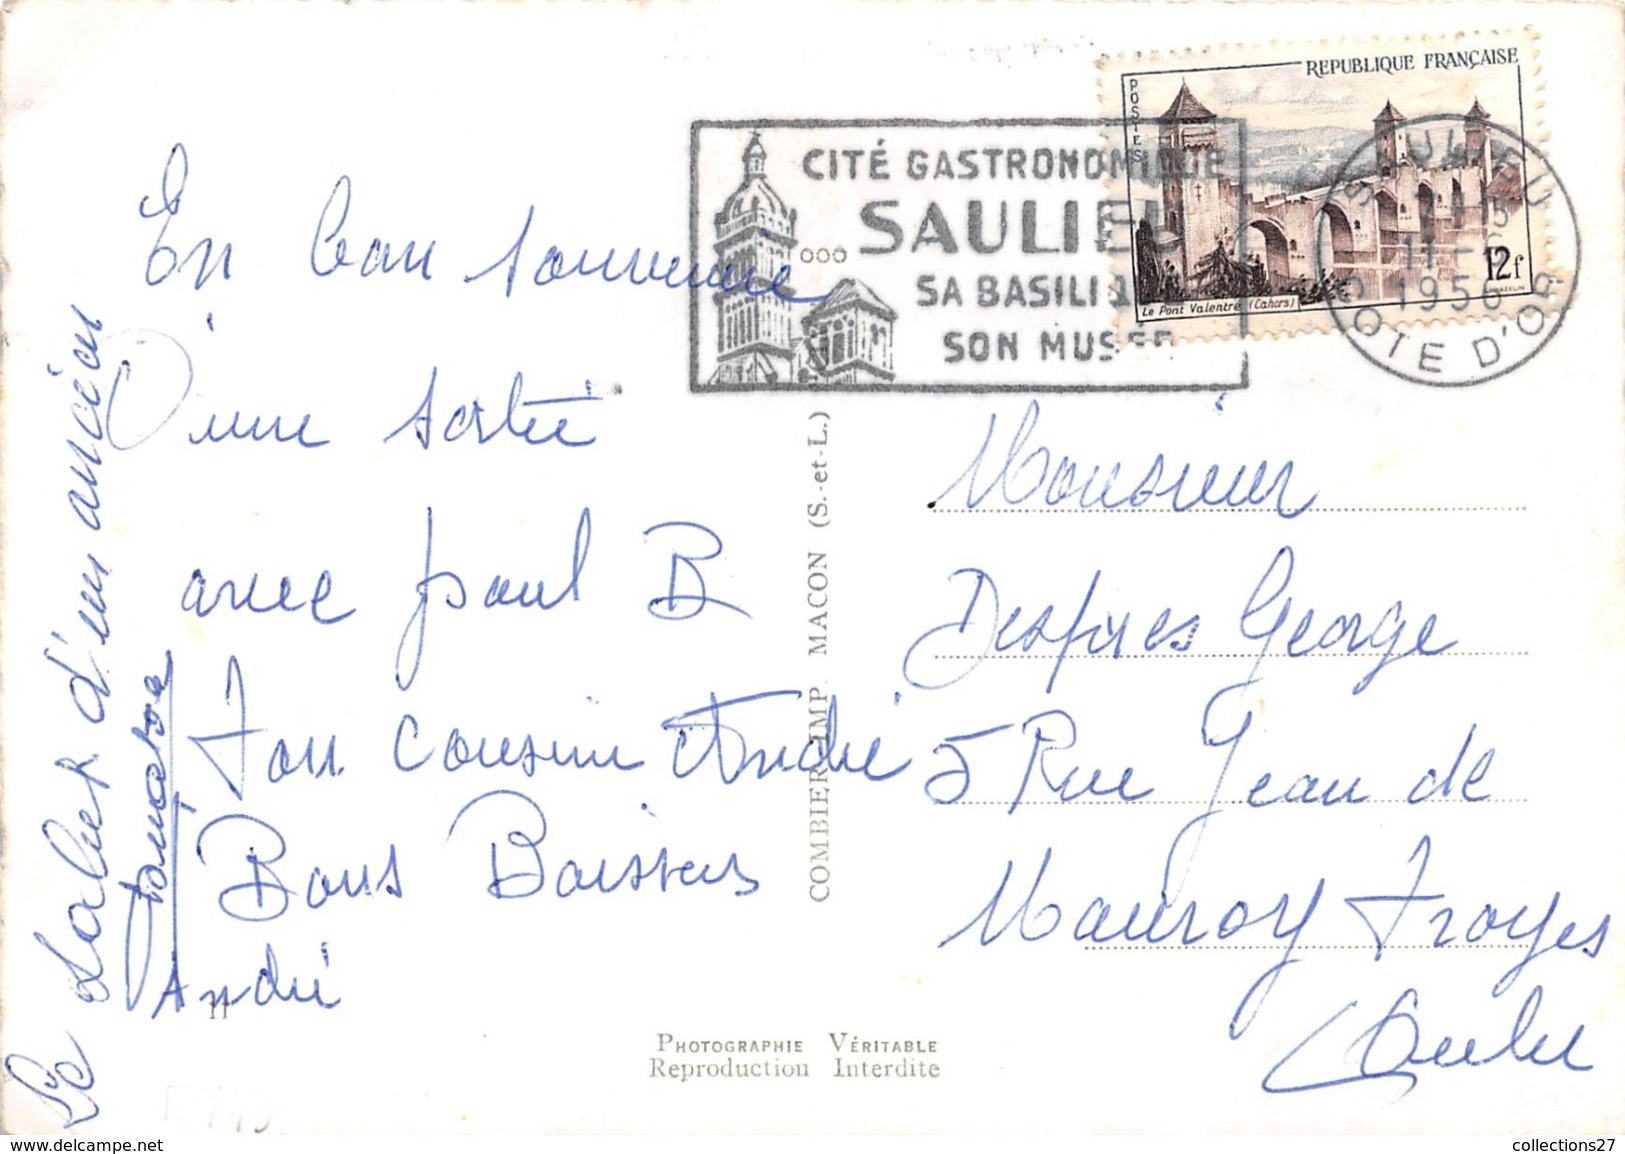 REPUBLIQUE FRANÇAISE
POSTES
12f
Le Pont Valentré (Cahors)
CITÉ GASTRONOMIQUE
SAULIEU
SA BASILI
SON MUSÉE
SAULIEU
11-6
1956
COTE D'OR
En bon souvenir
d'une sortie
avec paul B
Ton cousin André
Bons Baisers
André
Le
d'un ancien
COMBIER IMP. MACON (S.-et-L.)
Monsieur
Despres George
5 Rue Jean de
Mauroy Troyes
Aube
11
PHOTOGRAPHIE VÉRITABLE
Reproduction Interdite
collections27